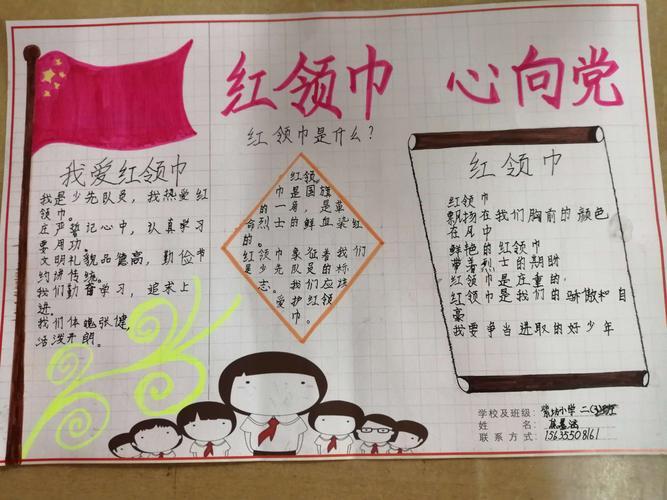 红领巾 心向党
红领巾是什么?
我爱红领巾
我是少先队员,我热爱红
领巾。
庄严誓记心中,认真学习
要用功。
文明礼貌品德高,勤俭节
约讲传统。
我们勤奋学习,追求上
进。
我们体魄张健,
活泼开朗。
红领
巾是国旗
的一角,是革
命烈士的鲜血染红
的。
红领巾象征着我们
是少先队员的标
志。我们应该
爱护红领
巾。
红领巾
红领巾
飘扬在我们胸前的颜色
在风中
鲜艳的红领巾
带着烈士的期盼
红领巾是庄重的,
红领巾是我们的骄傲和自
豪
我要争当进取的好少年
学校及班级:坊小学 二(3)班
姓名:
联系方式:15635508161